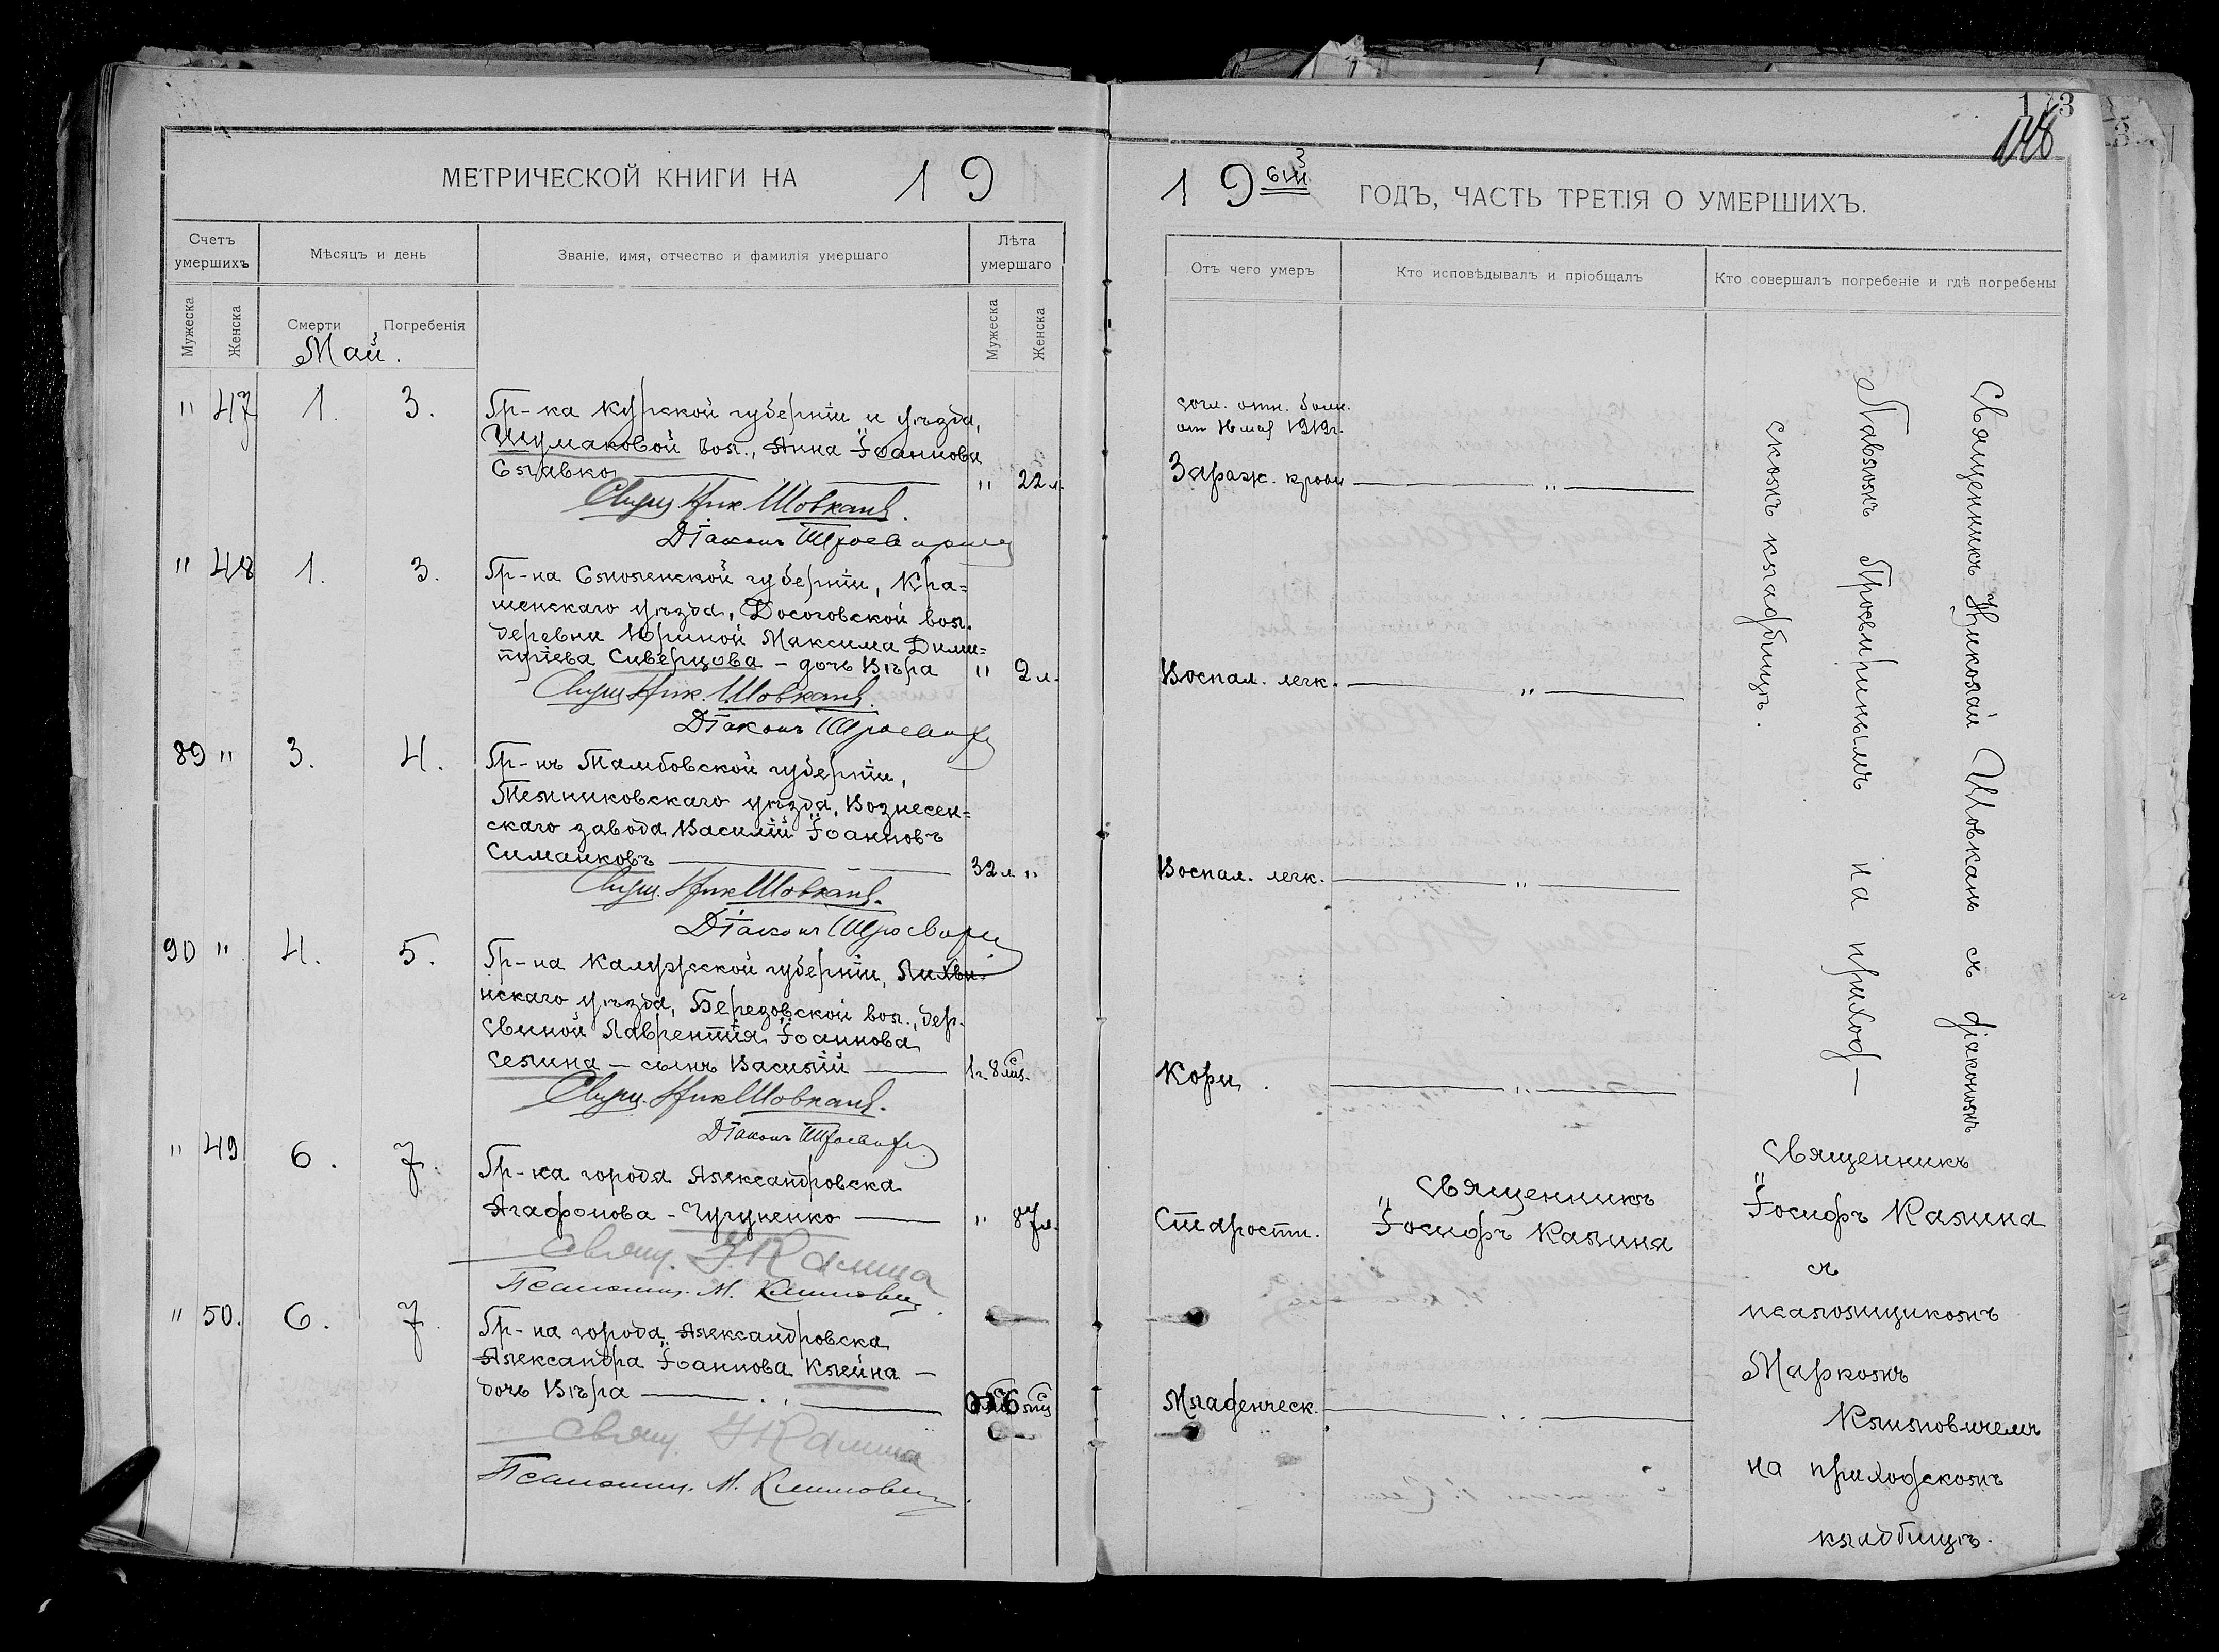 МЕТРИЧЕСКОЙ КНИГИ НА 19
Счетъ умершихъ
Мѣсяцъ и день
Званіе, имя, отчество и фамилія умершаго
Лѣта умершаго
Мужеска
Женска
Смерти
Погребенія
Мужеска
Женска
Май.
" 47 1. 3.
Гр-ка Курской губерніи и уѣзда,
Шумаковой вол., Анна Іоаннова
Славко
" 22 л.
Свящ. Ник. Шовкань.
Діаконъ
" 48 1. 3.
Гр-на Смоленской губерніи, Кра=
шенскаго уѣзда, Досоговской вол.
деревни Юриной Максима Дими=
тріева Сиверцова - дочь Вѣра
" 2 л.
Свящ. Ник. Шовкань.
Діаконъ
89 " 3. 4.
Гр-нъ Тамбовской губерніи,
Темниковскаго уѣзда, Вознесен=
скаго завода Василій Іоанновъ
Симанковъ
32 л. "
Свящ. Ник. Шовкань.
Діаконъ
90 " 4. 5.
Гр-на Калужской губерніи, Лихвин-
нскаго уѣзда, Березовской вол., дер.
Свиной Лаврентія Іоаннова
Селина - сынъ Василій
1 г. 8 мѣс.
Свящ. Ник. Шовкань.
Діаконъ
" 49 6. 7.
Гр-ка города Александровска
Агафонова - Чугуненко
" 87 л.
Свящ. І. Калина
Псаломщ. М. Климович
" 50. 6. 7.
Гр-на города Александровска
Александра Іоаннова Клейна -
дочь Вѣра
6 мѣс
Свящ. І. Калина
Псаломщ. М. Климович
173
148
19 ГОДЪ, ЧАСТЬ ТРЕТІЯ О УМЕРШИХЪ.
Отъ чего умеръ
Кто исповѣдывалъ и пріобщалъ
Кто совершалъ погребеніе и гдѣ погребены
согл. отн. болн.
от 16 мая 1919 г.
Зараж. крови "
Воспал. легк. "
Воспал. легк. "
Кори. "
Старости.
Священникъ
Іосифъ Калина
Младенческ.
Священникъ Николай Шовкань съ діакономъ
Павломъ Просвиринымъ на приход-
скомъ кладбищѣ.
Священникъ
Іосифъ Калина
съ
псаломщикомъ
Маркомъ
Климовичемъ
на приходскомъ
кладбищѣ.